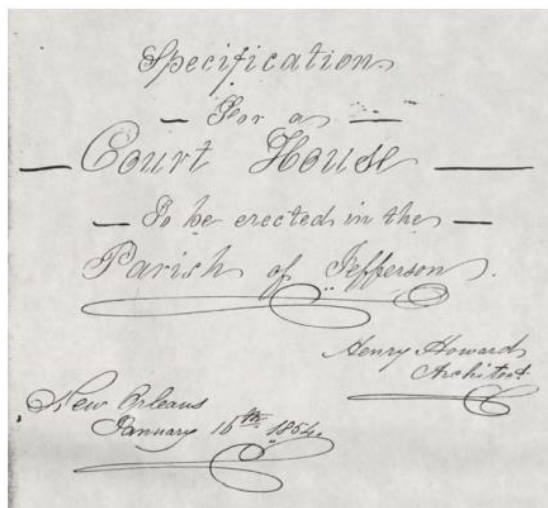 Specification
— For a —
— Court House —
— To be erected in the —
Parish of Jefferson.
Henry Howard
Architect.
New Orleans
January 16th 1854.